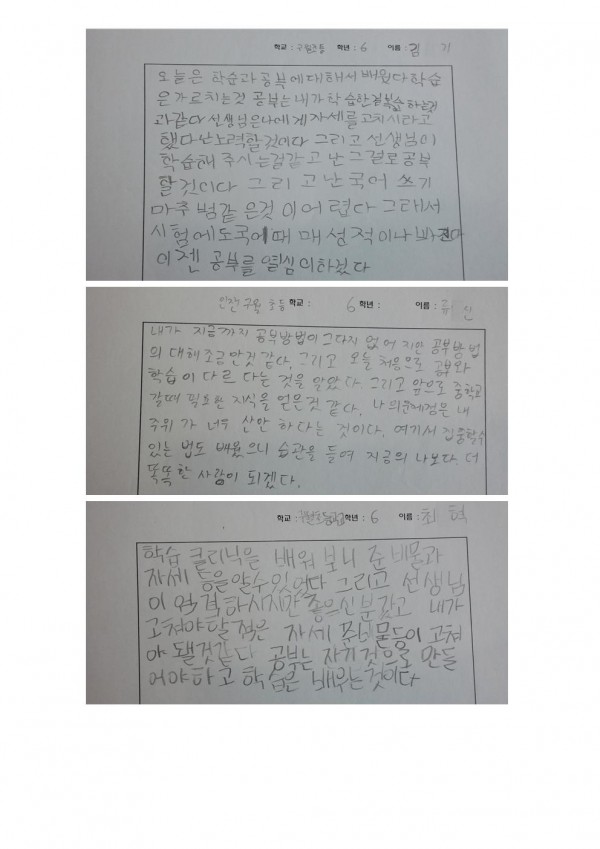 학교 : 구월초등 학년 : 6 이름 : 김 기
오늘은 학습과 공부에 대해서 배웠다 학습
은 가르치는것 공부는 내가 학습한걸 복습 하는것
과 같다 선생님은 나에게 자세를 고치시라고
했다 난 노력할것이다 그리고 선생님이
학습해 주시는걸 갖고 난 그걸로 공부
할것이다 그리고 난 국어 쓰기
마추범같은것이 어렵다 그래서
시험에도 국어 때매 성적이 나빠진다
이젠 공부를 열심의하겠다
인천구월초등학교 : 6 학년 : 이름 : 류 인
내가 지금까지 공부방법이 그다지 없어지만 공부방법
의 대해 조금 안것 같다. 그리고 오늘 처음으로 공부와
학습이 다르다는 것을 알았다. 그리고 앞으로 중학교
갈때 필요한 지식을 얻은것 같다. 나의 문제점은 내
주위가 너무 산만하다는 것이다. 여기서 집중할수
있는 법도 배웠으니 습관을 들여 지금의 나보다 더
똑똑한 사람이 되겠다.
학교 : 구월초등학교 학년 : 6 이름 : 최 혁
학습 클리닉을 배워 보니 준비물과
자세 등을 알수있었다 그리고 선생님
이 엄격하시지만 좋으신분 같고 내가
고쳐야할 점은 자세 준비물등이 고쳐
야 될것같다 공부는 자기것으로 만들
어야하고 학습은 배우는것이다